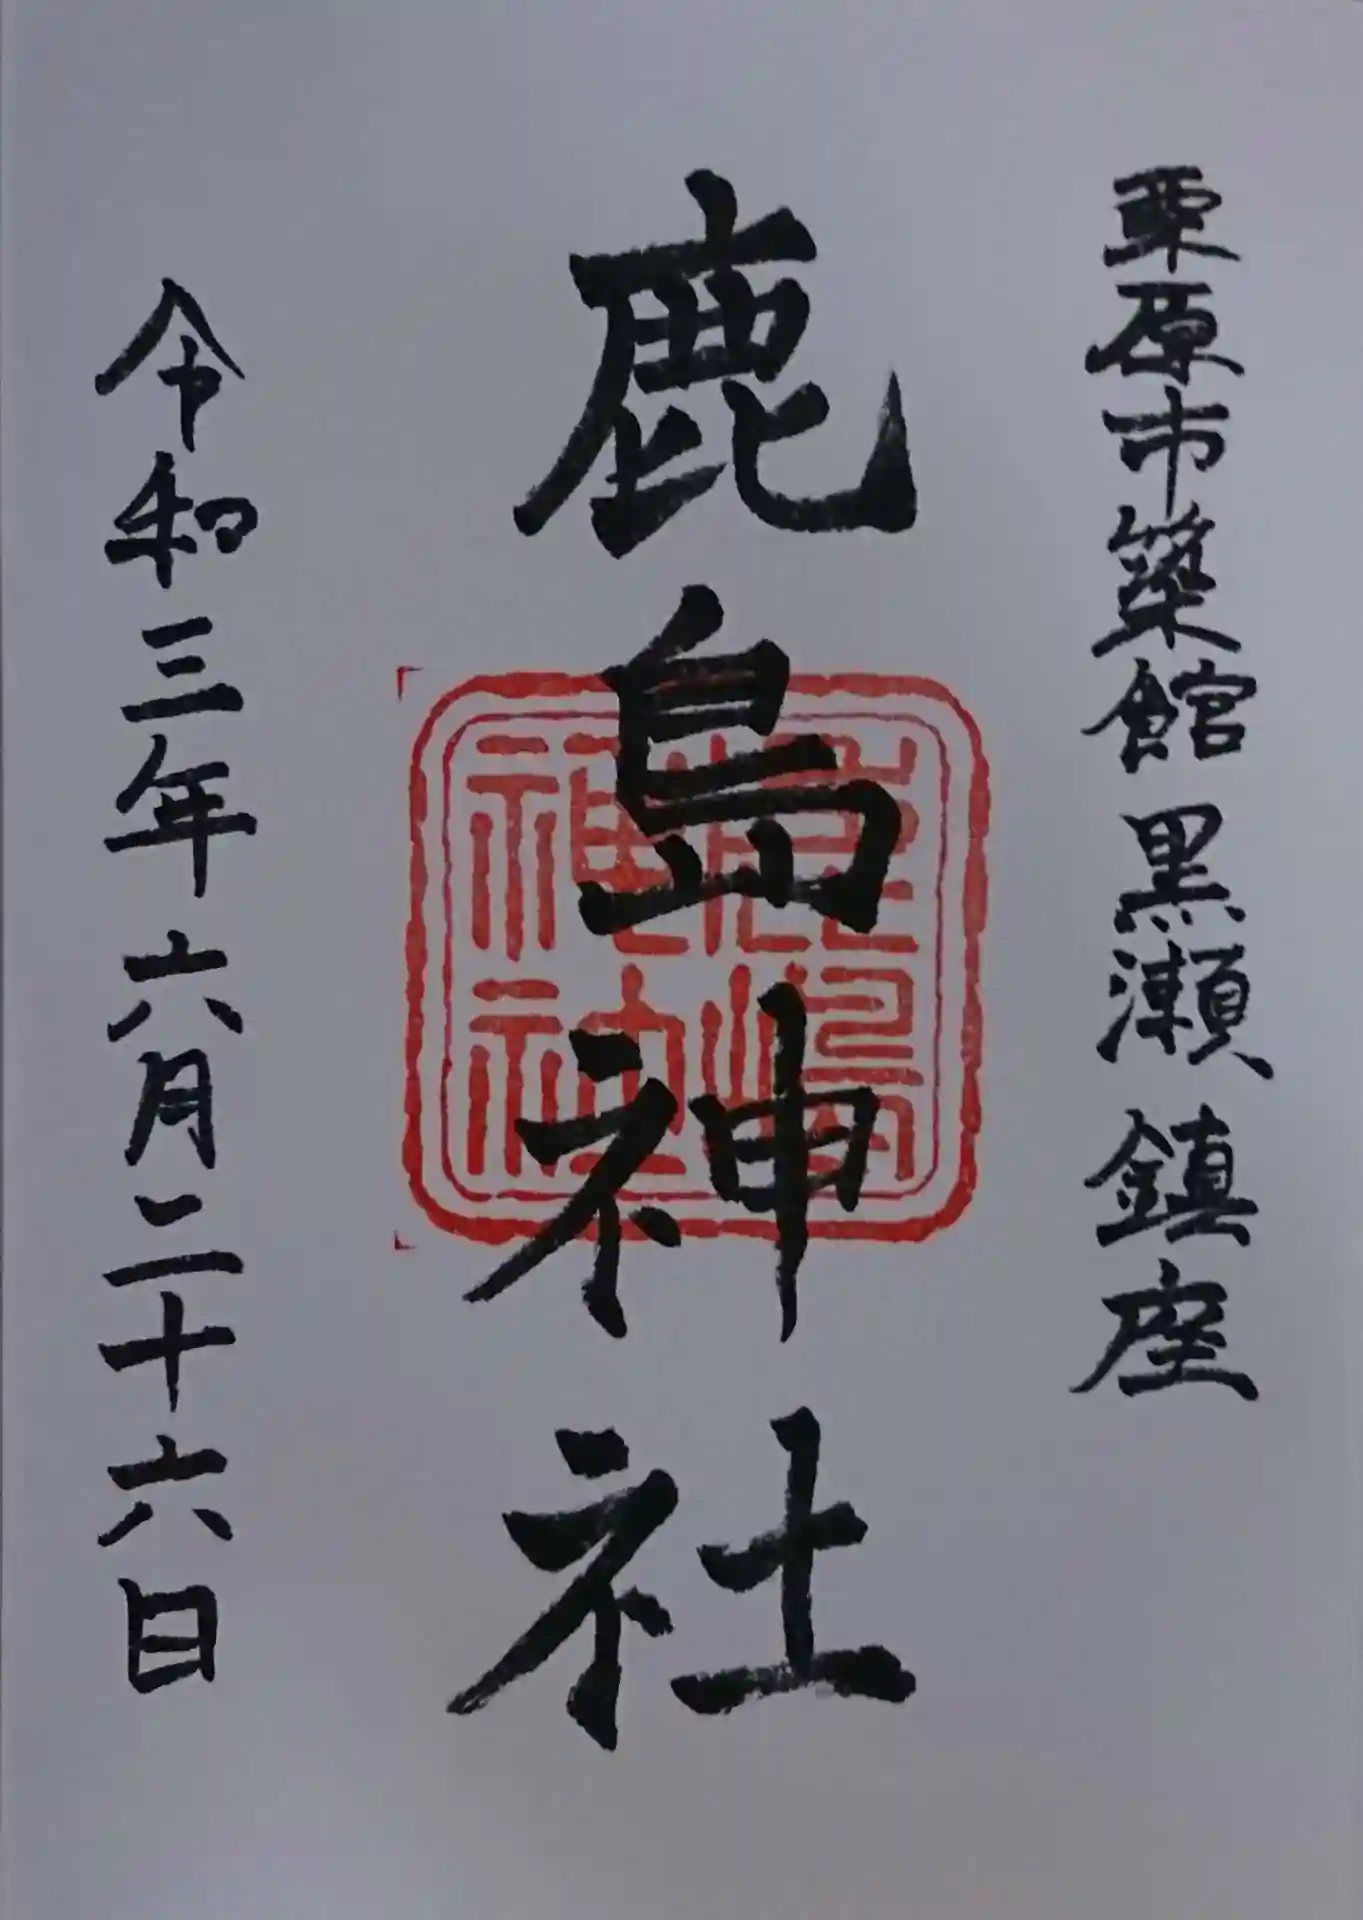 栗原市築館黒瀬鎮座
鹿島神社
令和三年六月二十六日
鹿嶋
神社